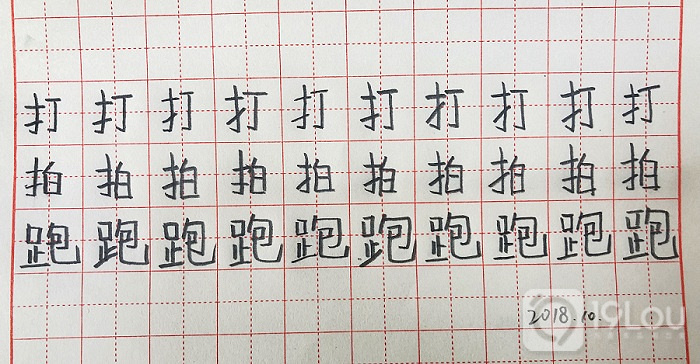 打打打打打打打打打打
拍拍拍拍拍拍拍拍拍拍
跑跑跑跑跑跑跑跑跑跑
2018.10.
19Lou